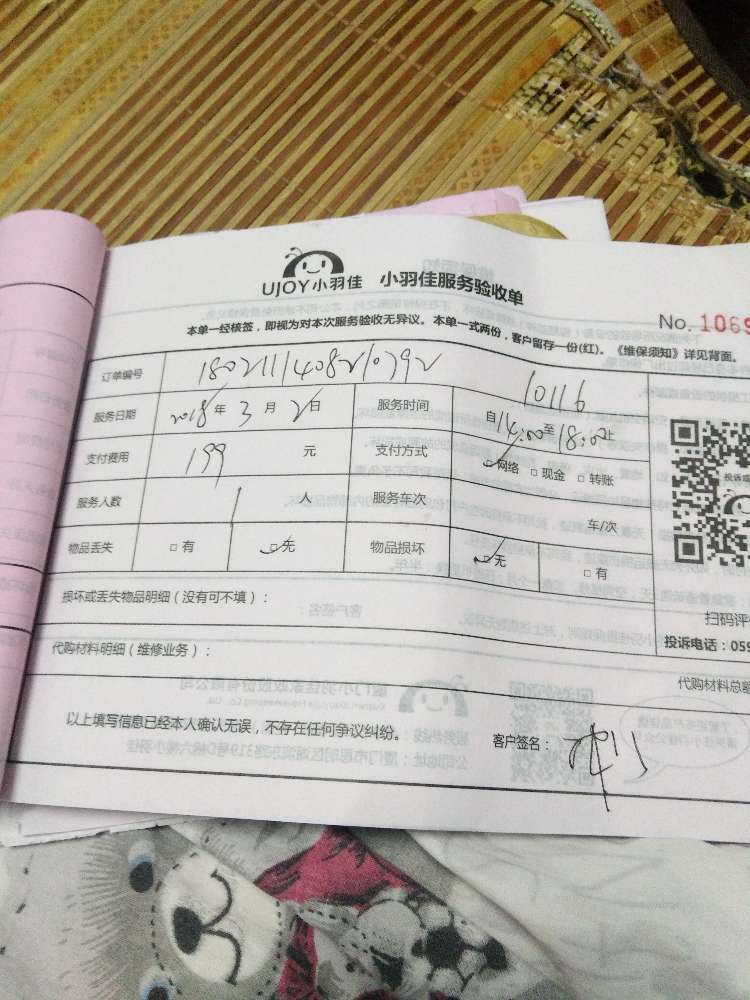 UJOY小羽佳 小羽佳服务验收单
No. 1069
本单一经核签，即视为对本次服务验收无异议。本单一式两份，客户留存一份(红)。《维保须知》详见背面。
订单编号 1802111408210792 10116
服务日期 2018年3月2日 服务时间 自14:00至18:00止
支付费用 199 元 支付方式 ☑网络 □现金 □转账
服务人数 1 人 服务车次 车/次
物品丢失 □有 ☑无 物品损坏 ☑无 □有
损坏或丢失物品明细（没有可不填）：
扫码评
投诉电话：059
代购材料明细（维修业务）：
代购材料总额
以上填写信息已经本人确认无误，不存在任何争议纠纷。
客户签名：